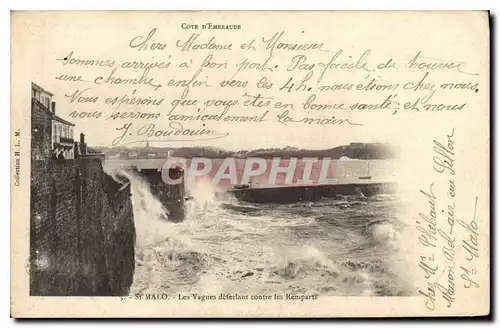 COTE D'EMERAUDE
Chers Madame et Monsieur
Sommes arrivés à bon port. Pas facile de trouver
une chambre, enfin vers les 4h. nous étions chez nous,
Nous espérons que vous êtes en bonne santé, et nous
vous serrons amicalement la main
J. Baudouin
Collection H. L. M.
CPAPHIL
chez Mr Thébault
Maison Bel-air ou Sillon
St Malo
5. - St MALO. - Les Vagues déferlant contre les Remparts